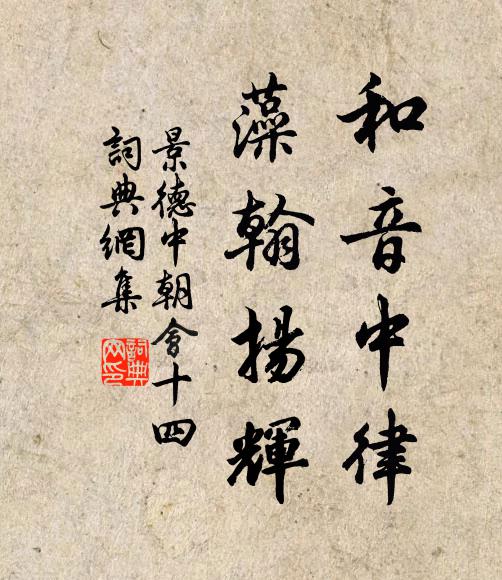 和音中律
藻翰揚輝
景德中朝會十四
詞典網集
詞典網印